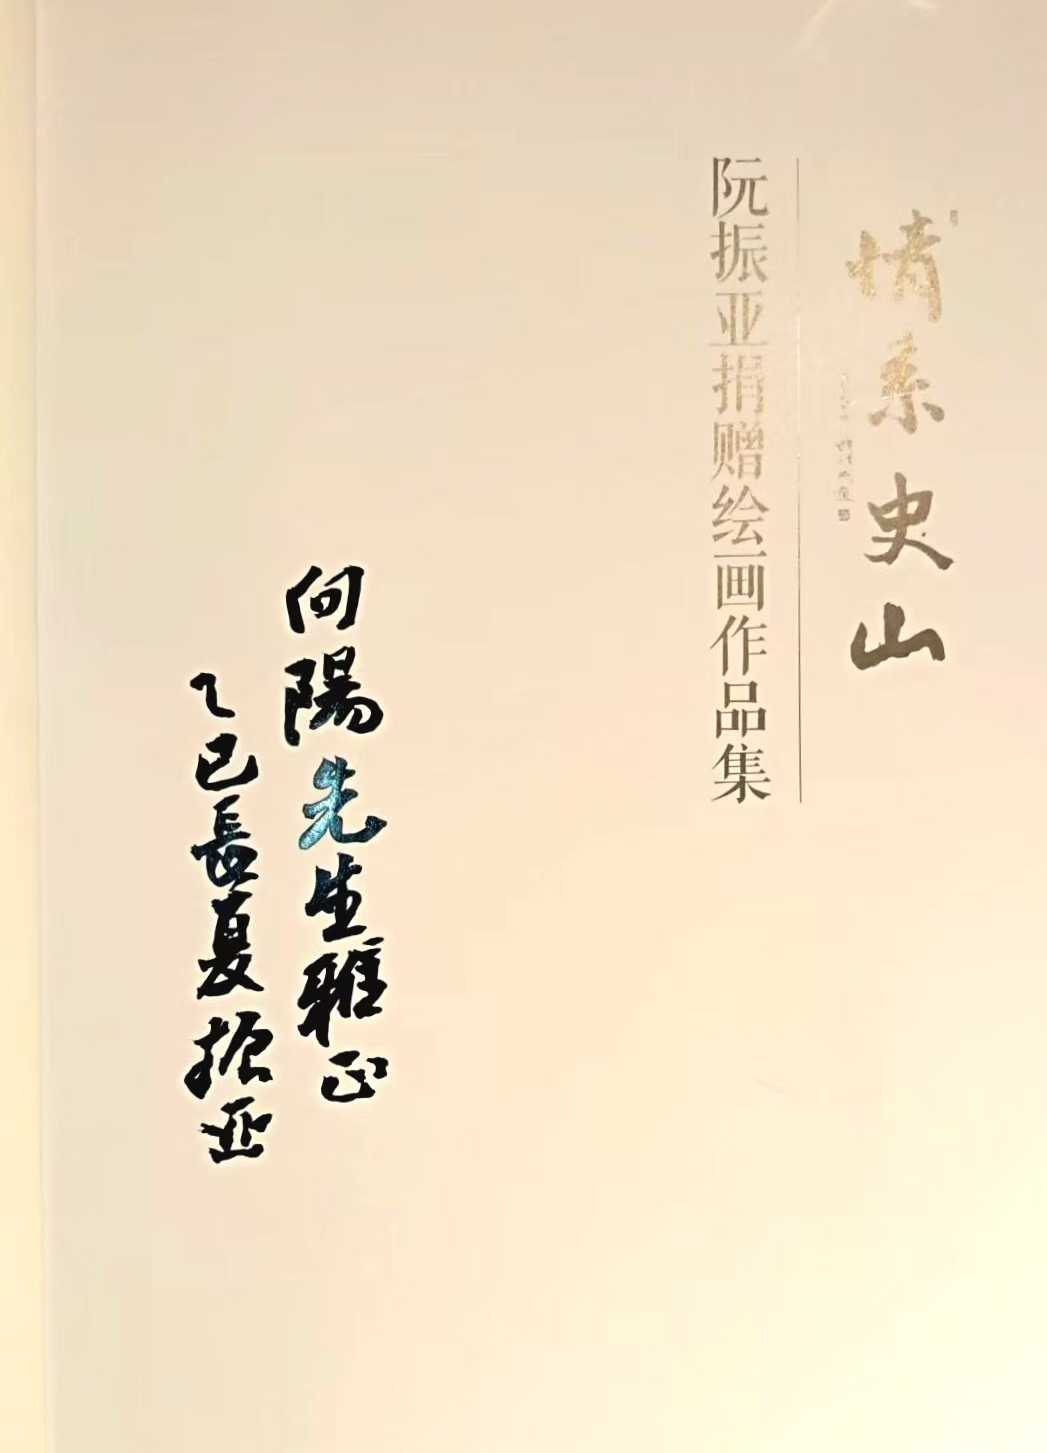 情系史山
阮振亚捐赠绘画作品集
向陽先生雅正
乙巳長夏振亚